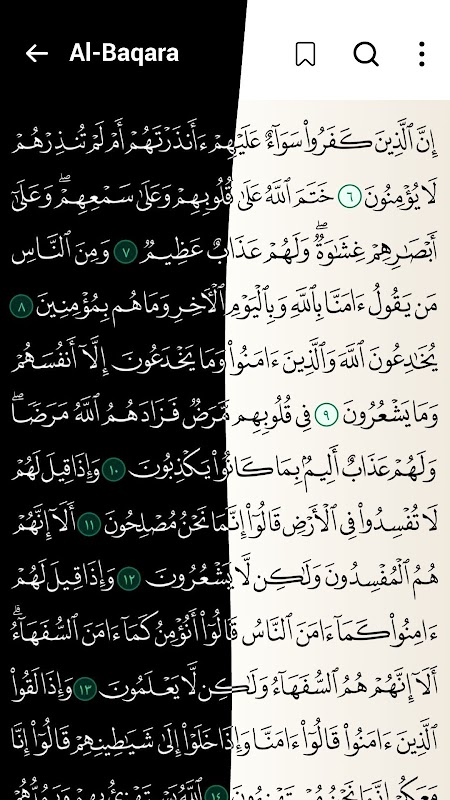 Al-Baqara
إِنَّ ٱلَّذِينَ كَفَرُوا۟ سَوَآءٌ عَلَيْهِمْ ءَأَنذَرْتَهُمْ أَمْ لَمْ تُنذِرْهُمْ
لَا يُؤْمِنُونَ ٦ خَتَمَ ٱللَّهُ عَلَىٰ قُلُوبِهِمْ وَعَلَىٰ سَمْعِهِمْ ۖ وَعَلَىٰٓ
أَبْصَـٰرِهِمْ غِشَـٰوَةٌ ۖ وَلَهُمْ عَذَابٌ عَظِيمٌ ٧ وَمِنَ ٱلنَّاسِ
مَن يَقُولُ ءَامَنَّا بِٱللَّهِ وَبِٱلْيَوْمِ ٱلْـَٔاخِرِ وَمَا هُم بِمُؤْمِنِينَ ٨
يُخَـٰدِعُونَ ٱللَّهَ وَٱلَّذِينَ ءَامَنُوا۟ وَمَا يَخْدَعُونَ إِلَّآ أَنفُسَهُمْ
وَمَا يَشْعُرُونَ ٩ فِى قُلُوبِهِم مَّرَضٌ فَزَادَهُمُ ٱللَّهُ مَرَضًا ۖ
وَلَهُمْ عَذَابٌ أَلِيمٌۢ بِمَا كَانُوا۟ يَكْذِبُونَ ١٠ وَإِذَا قِيلَ لَهُمْ
لَا تُفْسِدُوا۟ فِى ٱلْأَرْضِ قَالُوٓا۟ إِنَّمَا نَحْنُ مُصْلِحُونَ ١١ أَلَآ إِنَّهُمْ
هُمُ ٱلْمُفْسِدُونَ وَلَـٰكِن لَّا يَشْعُرُونَ ١٢ وَإِذَا قِيلَ لَهُمْ
ءَامِنُوا۟ كَمَآ ءَامَنَ ٱلنَّاسُ قَالُوٓا۟ أَنُؤْمِنُ كَمَآ ءَامَنَ ٱلسُّفَهَآءُ ۗ
أَلَآ إِنَّهُمْ هُمُ ٱلسُّفَهَآءُ وَلَـٰكِن لَّا يَعْلَمُونَ ١٣ وَإِذَا لَقُوا۟
ٱلَّذِينَ ءَامَنُوا۟ قَالُوٓا۟ ءَامَنَّا وَإِذَا خَلَوْا۟ إِلَىٰ شَيَـٰطِينِهِمْ قَالُوٓا۟ إِنَّا
مَعَكُمْ إِنَّمَا نَحْنُ مُسْتَهْزِءُونَ ١٤ ٱللَّهُ يَسْتَهْزِئُ بِهِمْ وَيَمُدُّهُمْ